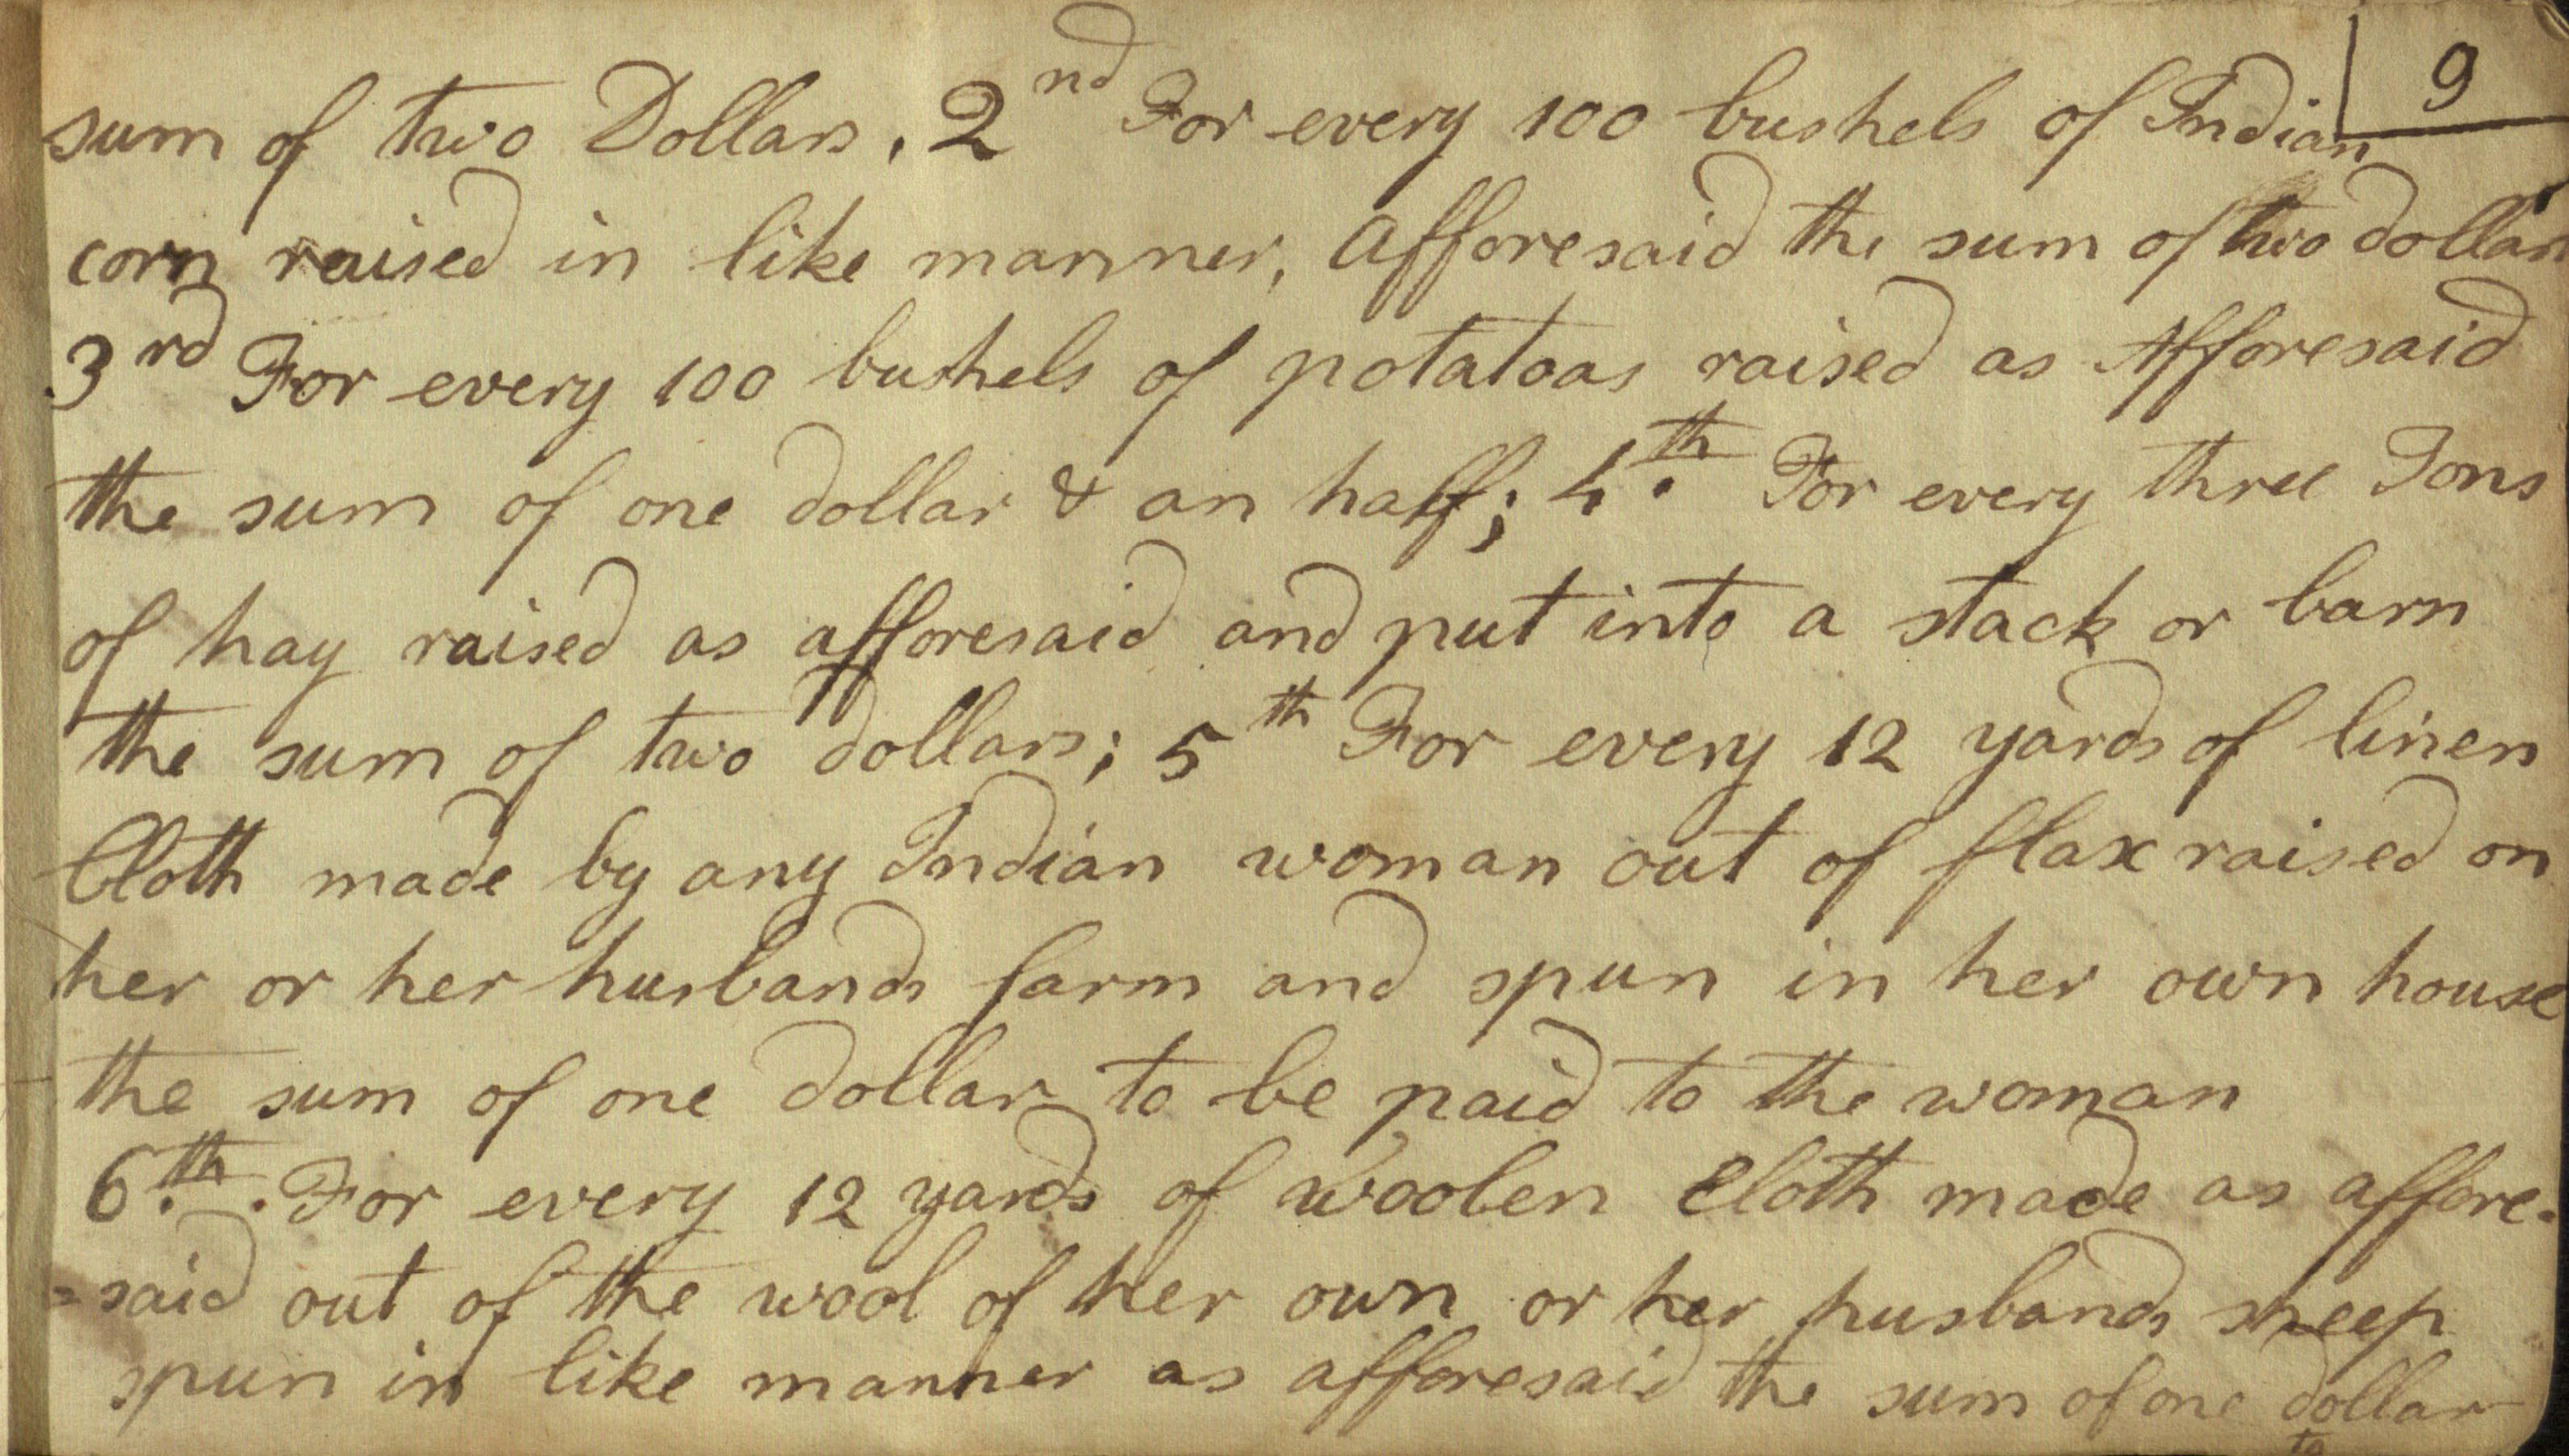 9
sum of two Dollars, 2nd For every 100 bushels of Indian
corn raised in like manner, Afforesaid the sum of two dollars
3rd For every 100 bushels of potatoas raised as Afforesaid
the sum of one dollar & an half; 4th. For every three Tons
of hay raised as afforesaid and put into a stack or barn
the sum of two dollars; 5th For every 12 yards of linen
Cloth made by any Indian woman out of flax raised on
her or her husbands farm and spun in her own house
the sum of one dollar to be paid to the woman
6th. For every 12 yards of woolen Cloth made as affore-
=said out of the wool of her own or her husbands sheep
spun in like manner as afforesaid the sum of one dollar
to